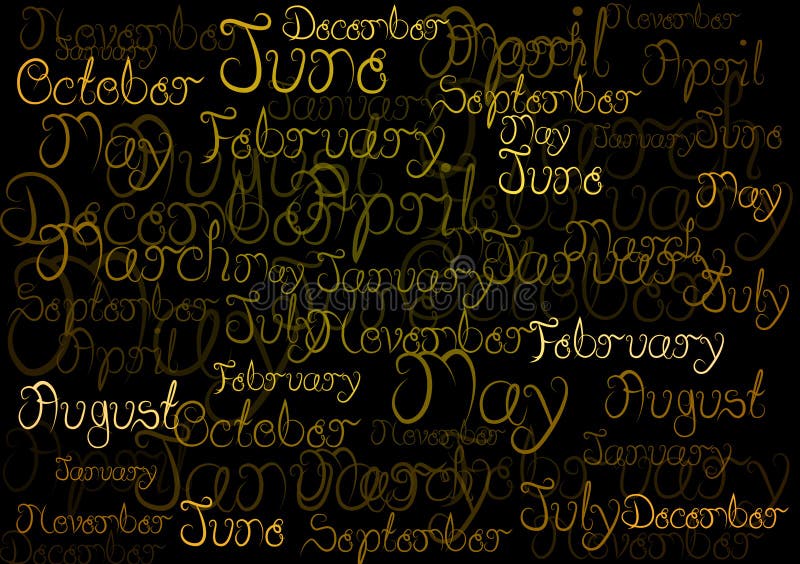 November December June April November
January October April
January September
May February May June
August June
December April May
March May January January March
September July November July
April February
February May August
August October November
January January March
November June September July December
December November
dreamstime